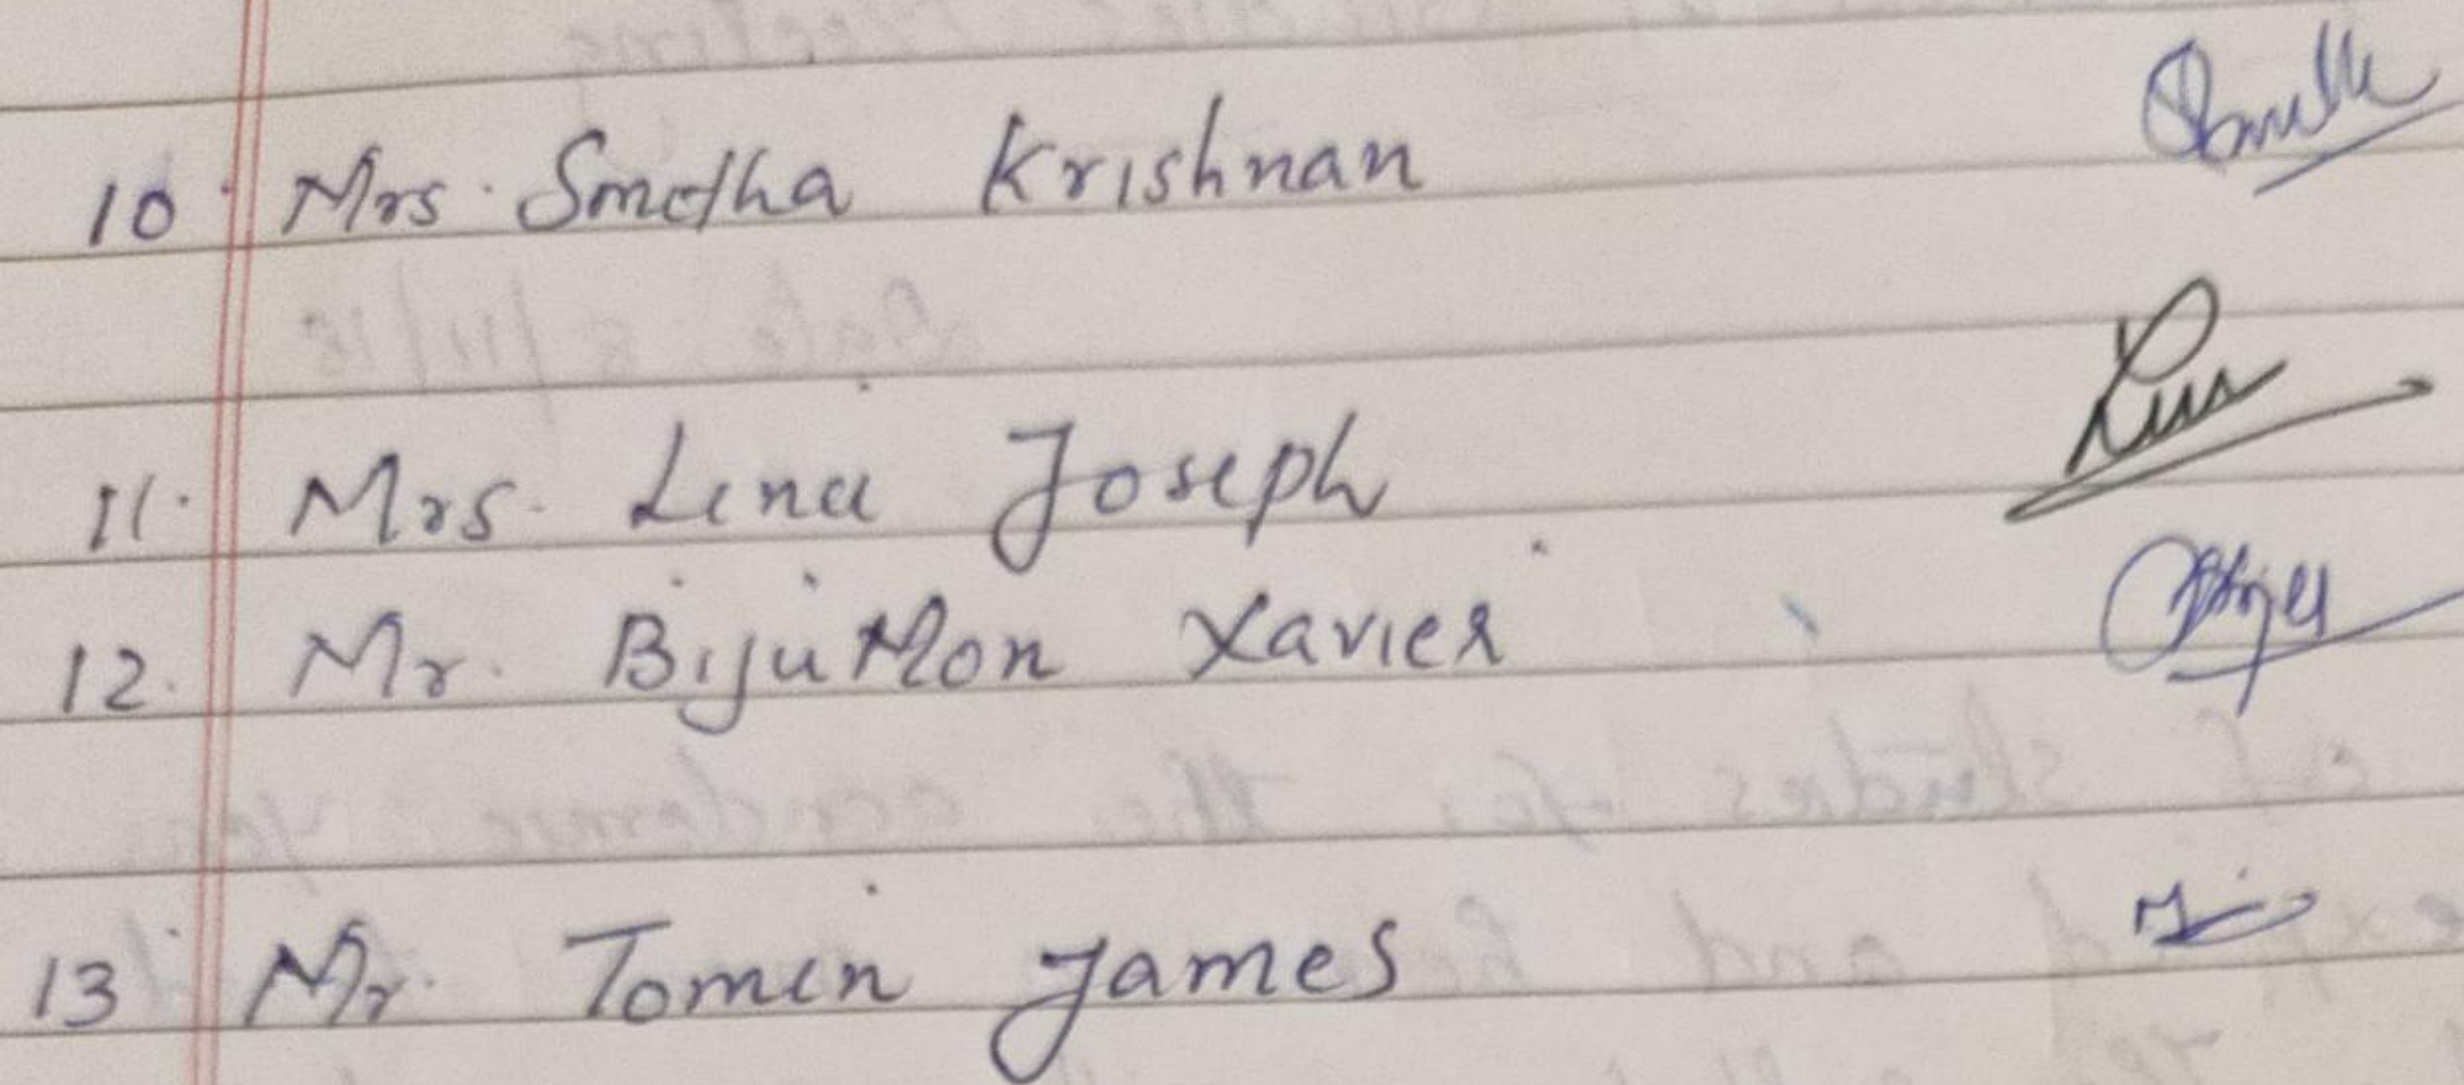 10. Mrs. Smitha Krishnan
11. Mrs. Lina Joseph
12. Mr. Bijumon Xavier
13 Mr. Tomin James